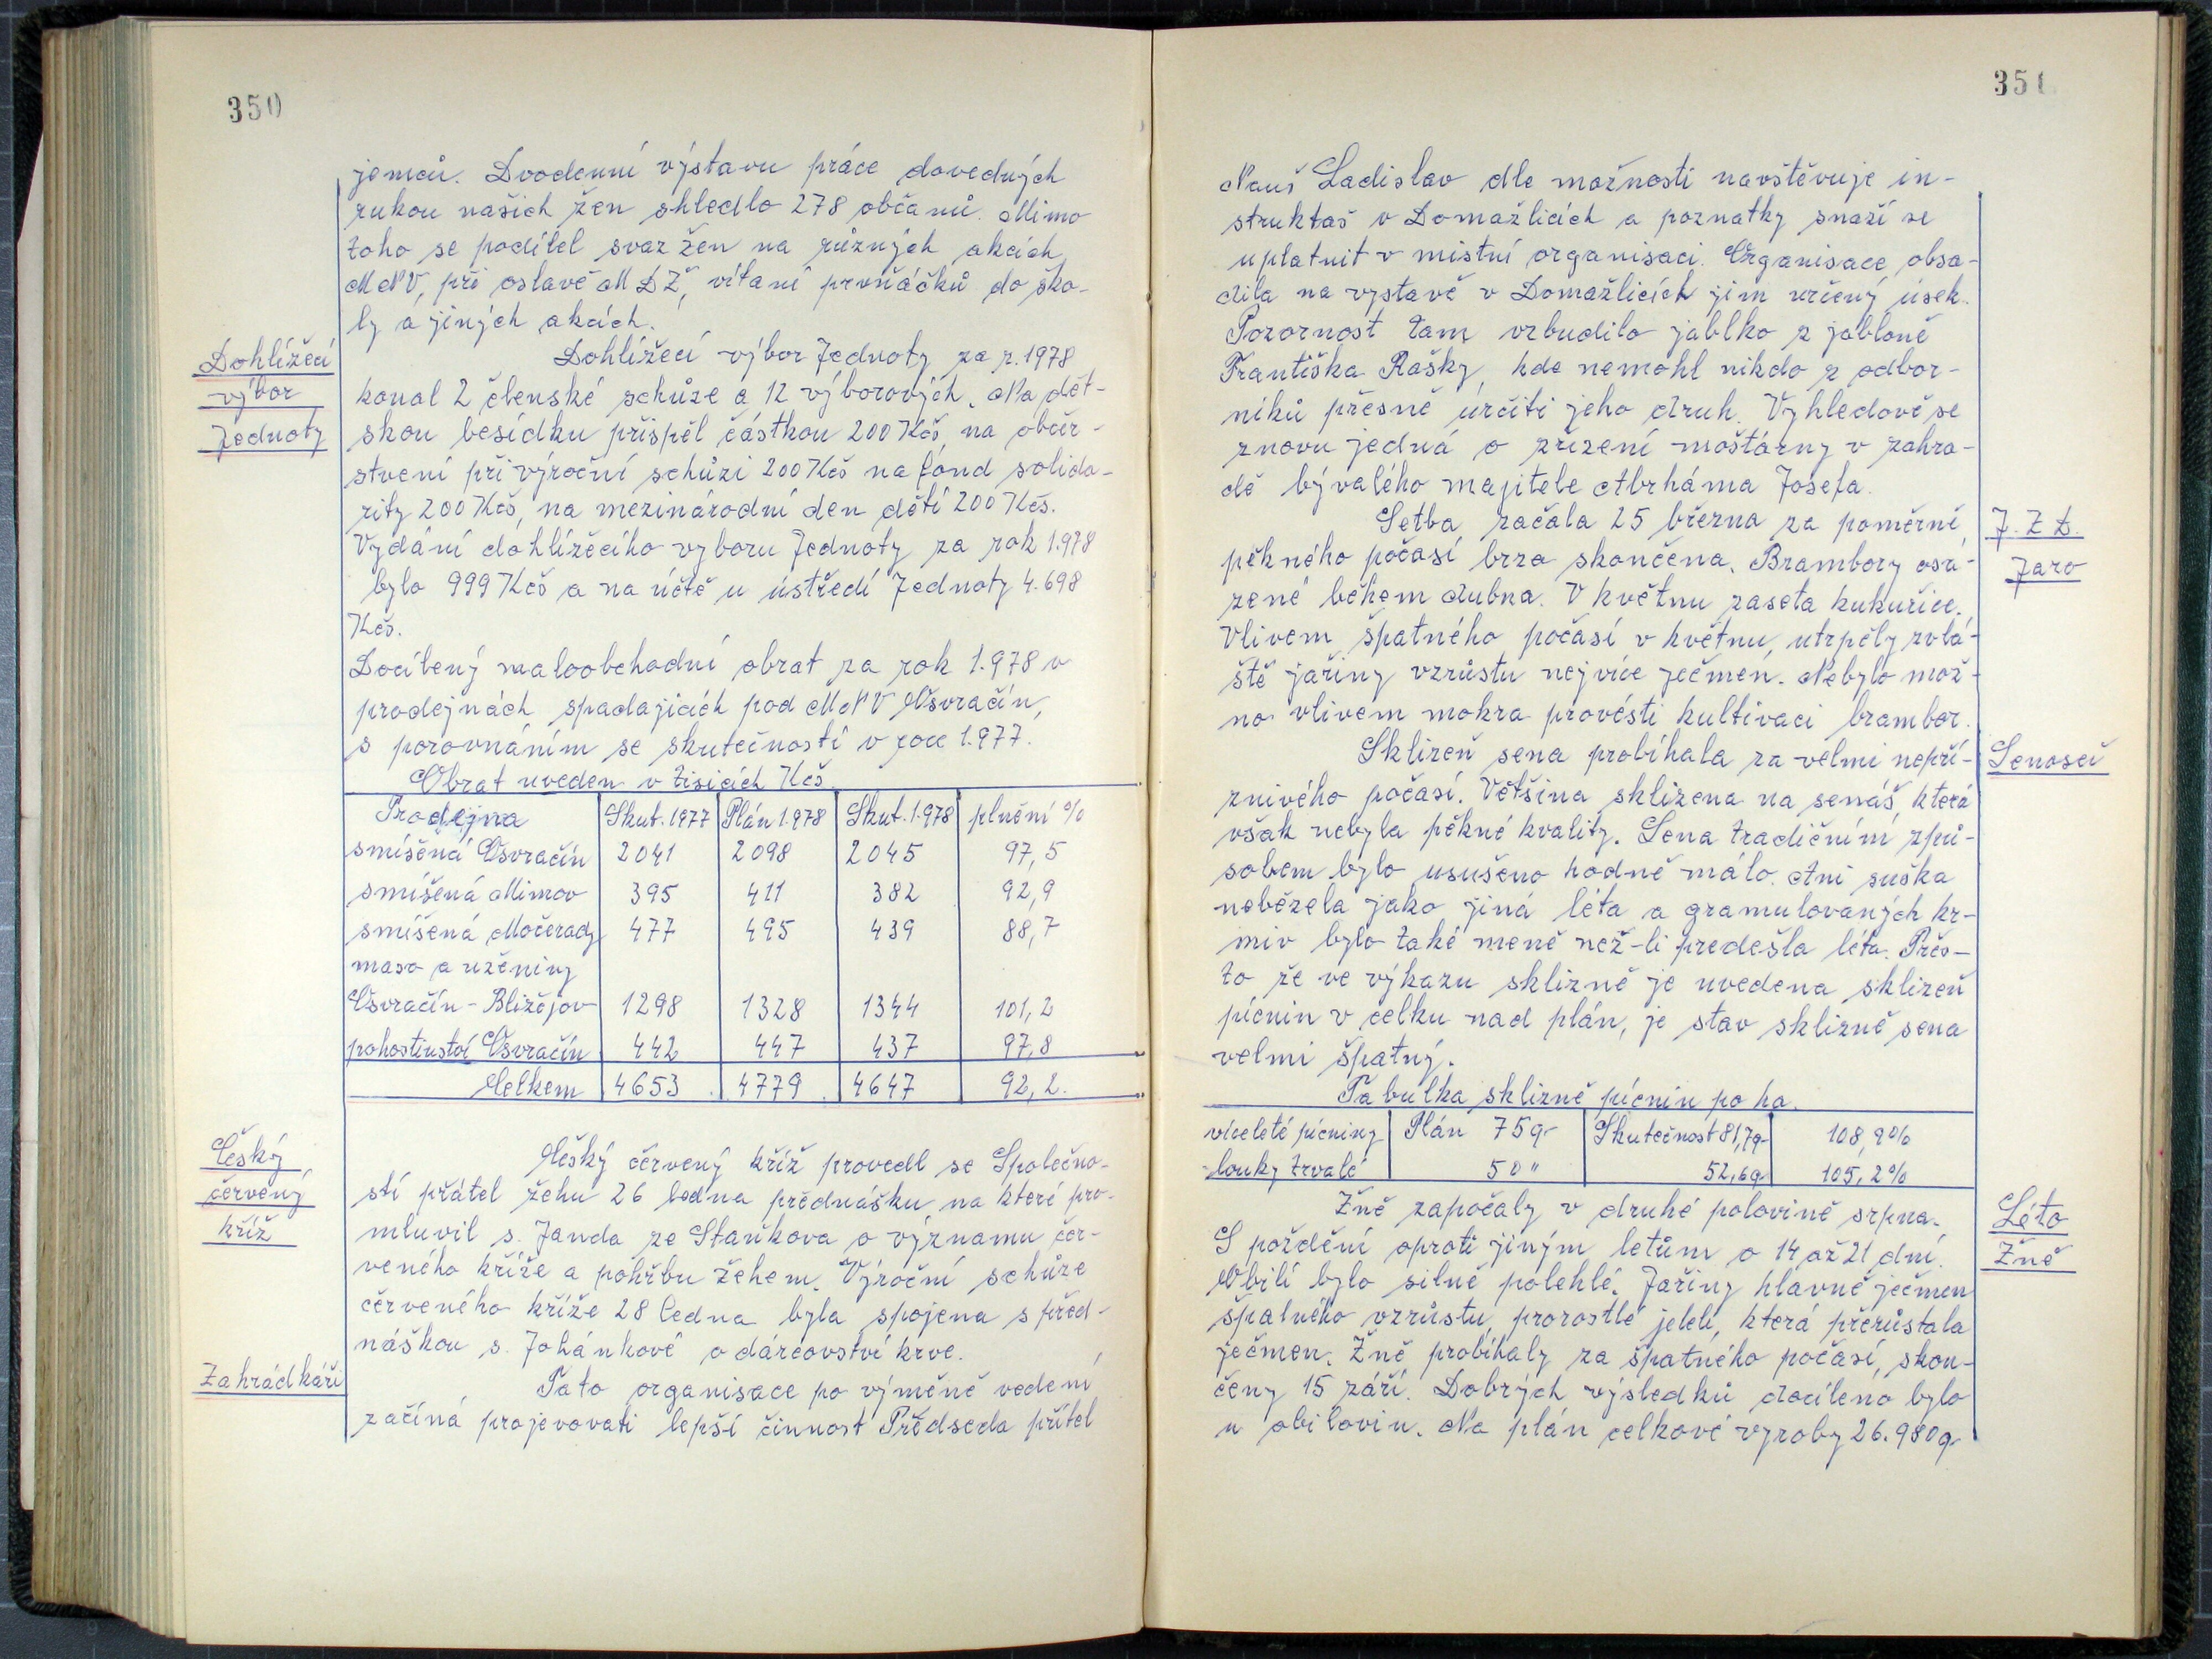 350
jemců. Dvodenní výstavu práce dovedných
rukou našich žen shledlo 278 občanů. Mimo
toho se podílel svaz žen na různých akcích
MNV, při oslavě MDŽ, vítaní prvňáčků do ško-
ly a jiných akcích.
Dohlížecí
výbor
Jednoty
Dohlížecí výbor Jednoty za r. 1978
konal 2 členské schůze a 12 výborových. Na dět-
skou besídku přispěl částkou 200 Kčs, na občer-
stvení při výroční schůzi 200 Kčs na fond solida-
rity 200 Kčs, na mezinárodní den dětí 200 Kčs.
Vydání dohlížecího vyboru Jednoty za rok 1.978
bylo 999 Kčs a na účtě u ústředí Jednoty 4.698
Kčs.
Docílený maloobchodní obrat za rok 1.978 v
prodejnách spadajicích pod MNV Osvračín,
s porovnáním se skutečností v roce 1.977.
Obrat uveden v tisicích Kčs.
Prodejna Skut. 1977 Plán 1.978 Skut. 1.978 plnění %
smíšená Osvračín 2041 2098 2045 97,5
smíšená Mimov 395 411 382 92,9
smíšená Močerady 477 495 439 88,7
maso a uzeniny
Osvračín - Bližejov 1298 1328 1344 101,2
pohostinství Osvračín 442 447 437 97,8
Celkem 4653 4779 4647 92,2.
Český
červený
kříž
Český červený kříž provedl se Společno-
stí přátel žehu 26 ledna přednášku na které pro-
mluvil s. Janda ze Staňkova o významu čer-
veného kříže a pohřbu žehem. Výroční schůze
červeného kříže 28 ledna byla spojena s před-
náškou s. Johánkové o dárcovství krve.
Zahrádkáři
Tato organisace po výměně vedení
začíná projevovati lepší činnost Předseda přítel
351
Nauš Ladislav dle možnosti navštěvuje in-
struktaš v Domažlicích a poznatky snaží se
uplatnit v místní organisaci. Organisace obsa-
dila na vystavě v Domažlicích jim určený úsek.
Pozornost tam vzbudilo jablko z jabloně
Františka Rašky, kde nemohl nikdo z odbor-
níků přesně určiti jeho druh. Vyhledově se
znovu jedná o zřízení moštárny v zahra-
dě bývalého majitele Abrháma Josefa.
J. Z D.
Jaro
Setba začala 25 března za poměrně
pěkného počasí brzo skončena. Brambory osá-
zené během dubna. V květnu zaseta kukuřice.
Vlivem špatného počasí v květnu, utrpěly zvlá-
ště jařiny vzrůstu nejvíce ječmen. Nebylo mož-
no vlivem mokra prověsti kultivaci brambor.
Senoseč
Sklizeň sena probíhala za velmi nepří-
znivého počasí. Většina sklizena na senáš, která
však nebyla pěkné kvality. Sena tradičním způ-
sobem bylo usušeno hodně málo. Ani suška
neběžela jako jiná léta a gramulovaných kr-
miv bylo také meně než-li předešla léta. Přes-
to že ve výkazu sklizně je uvedena sklizeň
pícnin v celku nad plán, je stav sklizně sena
velmi špatný.
Tabulka sklizně pícnin po ha.
víceleté pícniny Plán 75q Skutečnost 81,7q 108,9%
louky trvalé 50 " 52,6q 105,2%
Léto
Žně
Žně započaly v druhé polovině srpna.
S poždění oproti jiným letům o 14 až 21 dní.
Obilí bylo silně polehlé. Jařiny hlavně ječmen
špatného vzrůstu, prorostlé jeteli, která přerůstala
ječmen. Žně probíhaly za špatného počasí, skon-
čeny 15 září. Dobrých výsledků docíleno bylo
u obilovin. Na plán celkové vyroby 26.980q